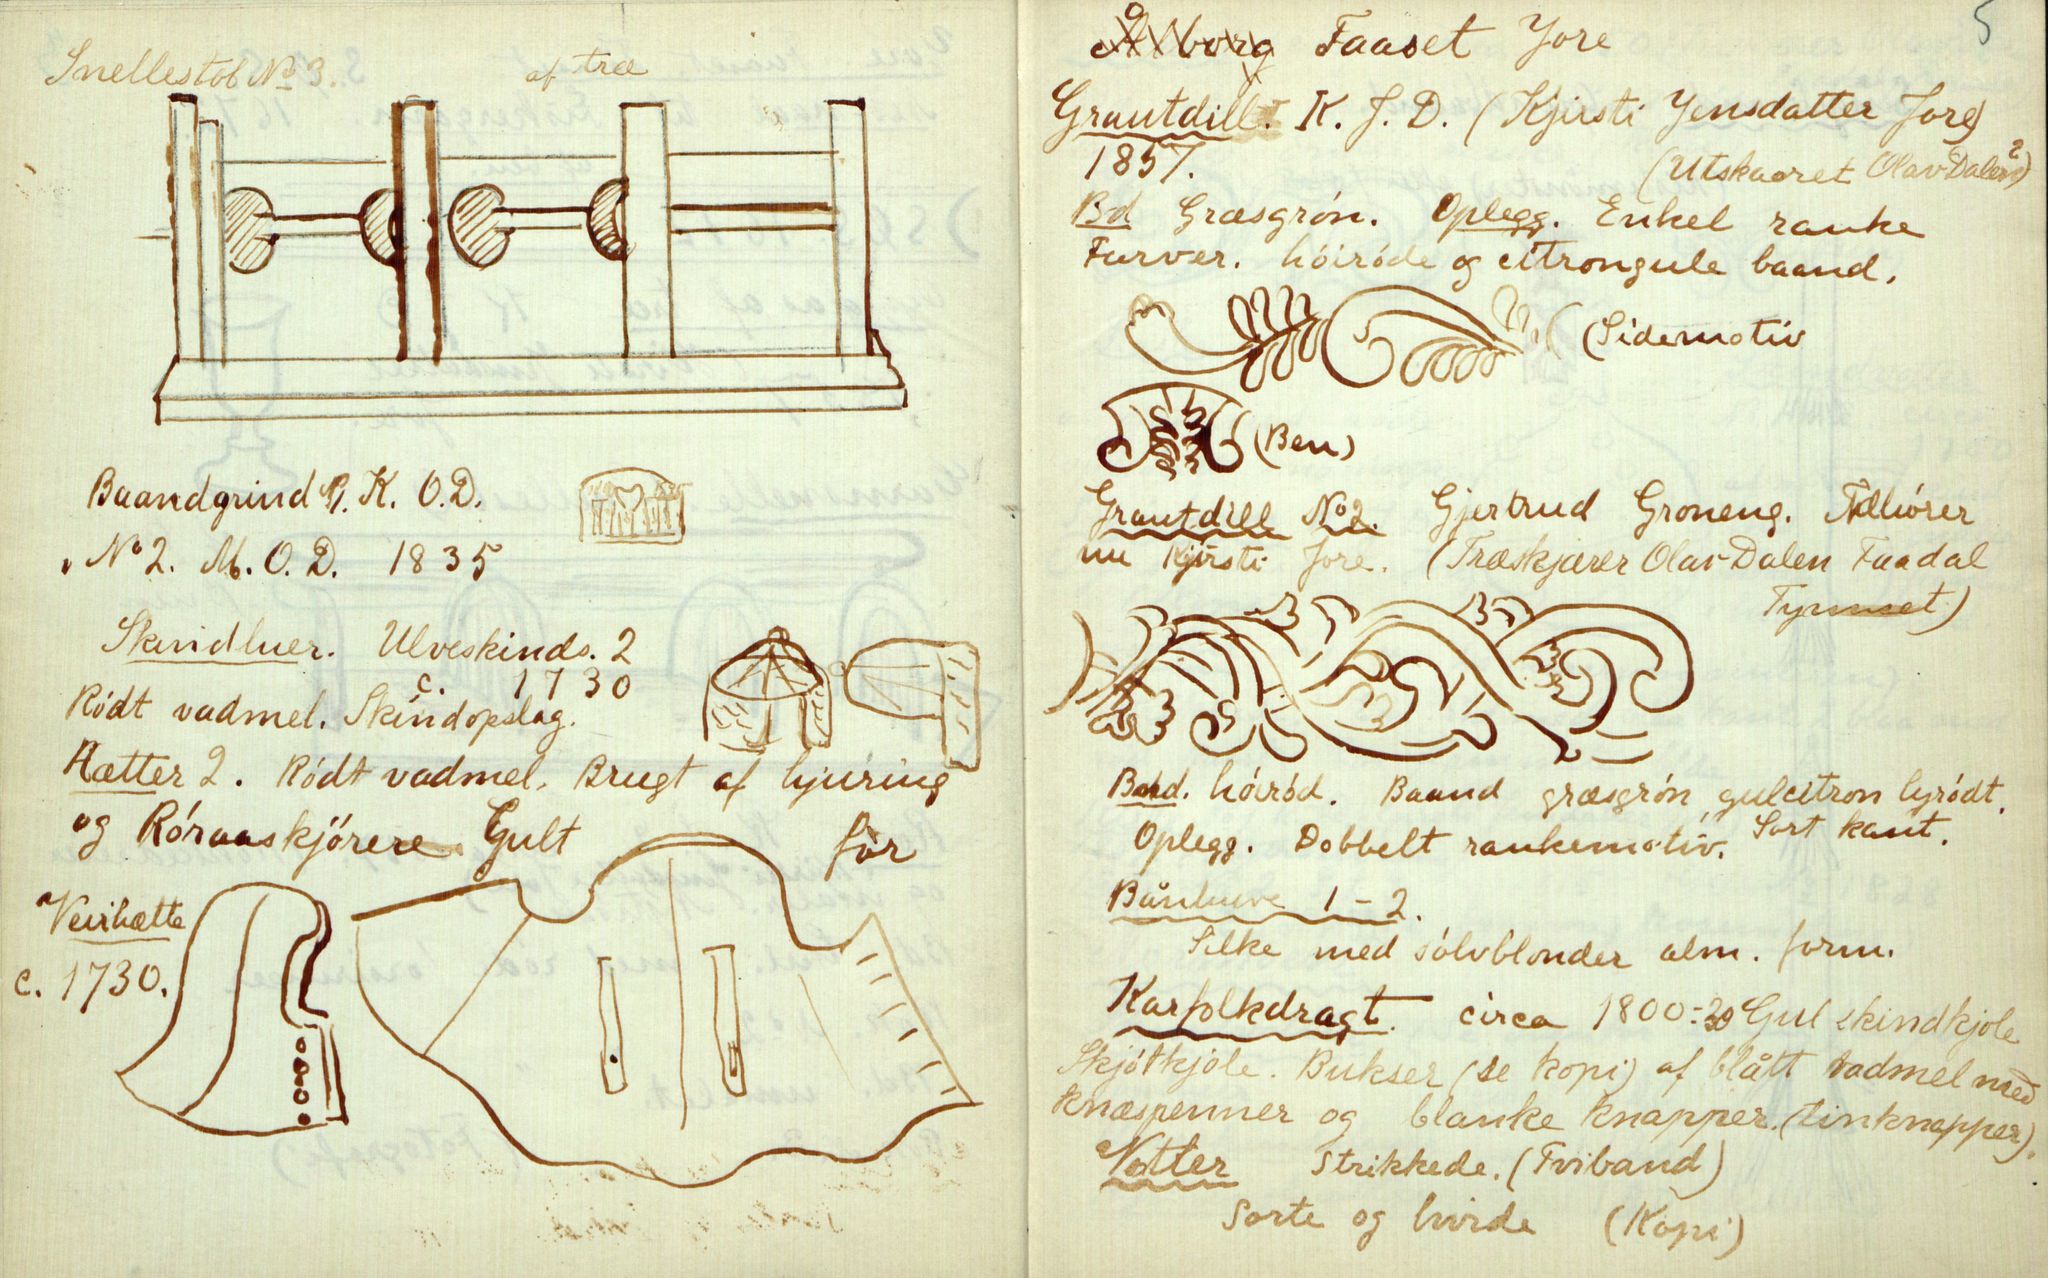 Snellestol No 3. af træ
Baandgrind K. O. D.
" No 2. M. O. D. 1835
Skindluer. Ulveskinds. 2
c. 1730
Rödt vadmel. Skindopslag.
Hætter 2. Rödt vadmel. Brugt af hjuring
og Röraaskjörere Gult för
Veirhætte
c. 1730.
5
Faaset Jore
Grautdill. K. J. D. (Kjirsti Jensdatter Jore)
1857. (Utskaaret Olav Dalen?)
Bd Græsgrön. Oplegg. Enkel ranke
Farver. höiröde og citrongule baand.
(Sidemotiv
(Ben)
Grautdill No 2. Gjertrud Groneng. Tilhörer
nu Kjirsti Jore. (Træskjærer Olav Dalen Faadal
Tynnset.)
Bund. höiröd. Baand græsgrön gulcitron lyrödt.
Oplegg. Dobbelt rankemotiv. Sort kant.
Bånhuve 1 - 2.
Silke med sölvblonder alm. form.
Karfolkdragt. circa 1800-30 Gul skindkjole
Skjötkjole. Bukser (se kopi) af blått vadmel med
knæspenner og blanke knapper. (tinknapper).
Votter Strikkede. (Tviband)
Sorte og hvide (Kopi)